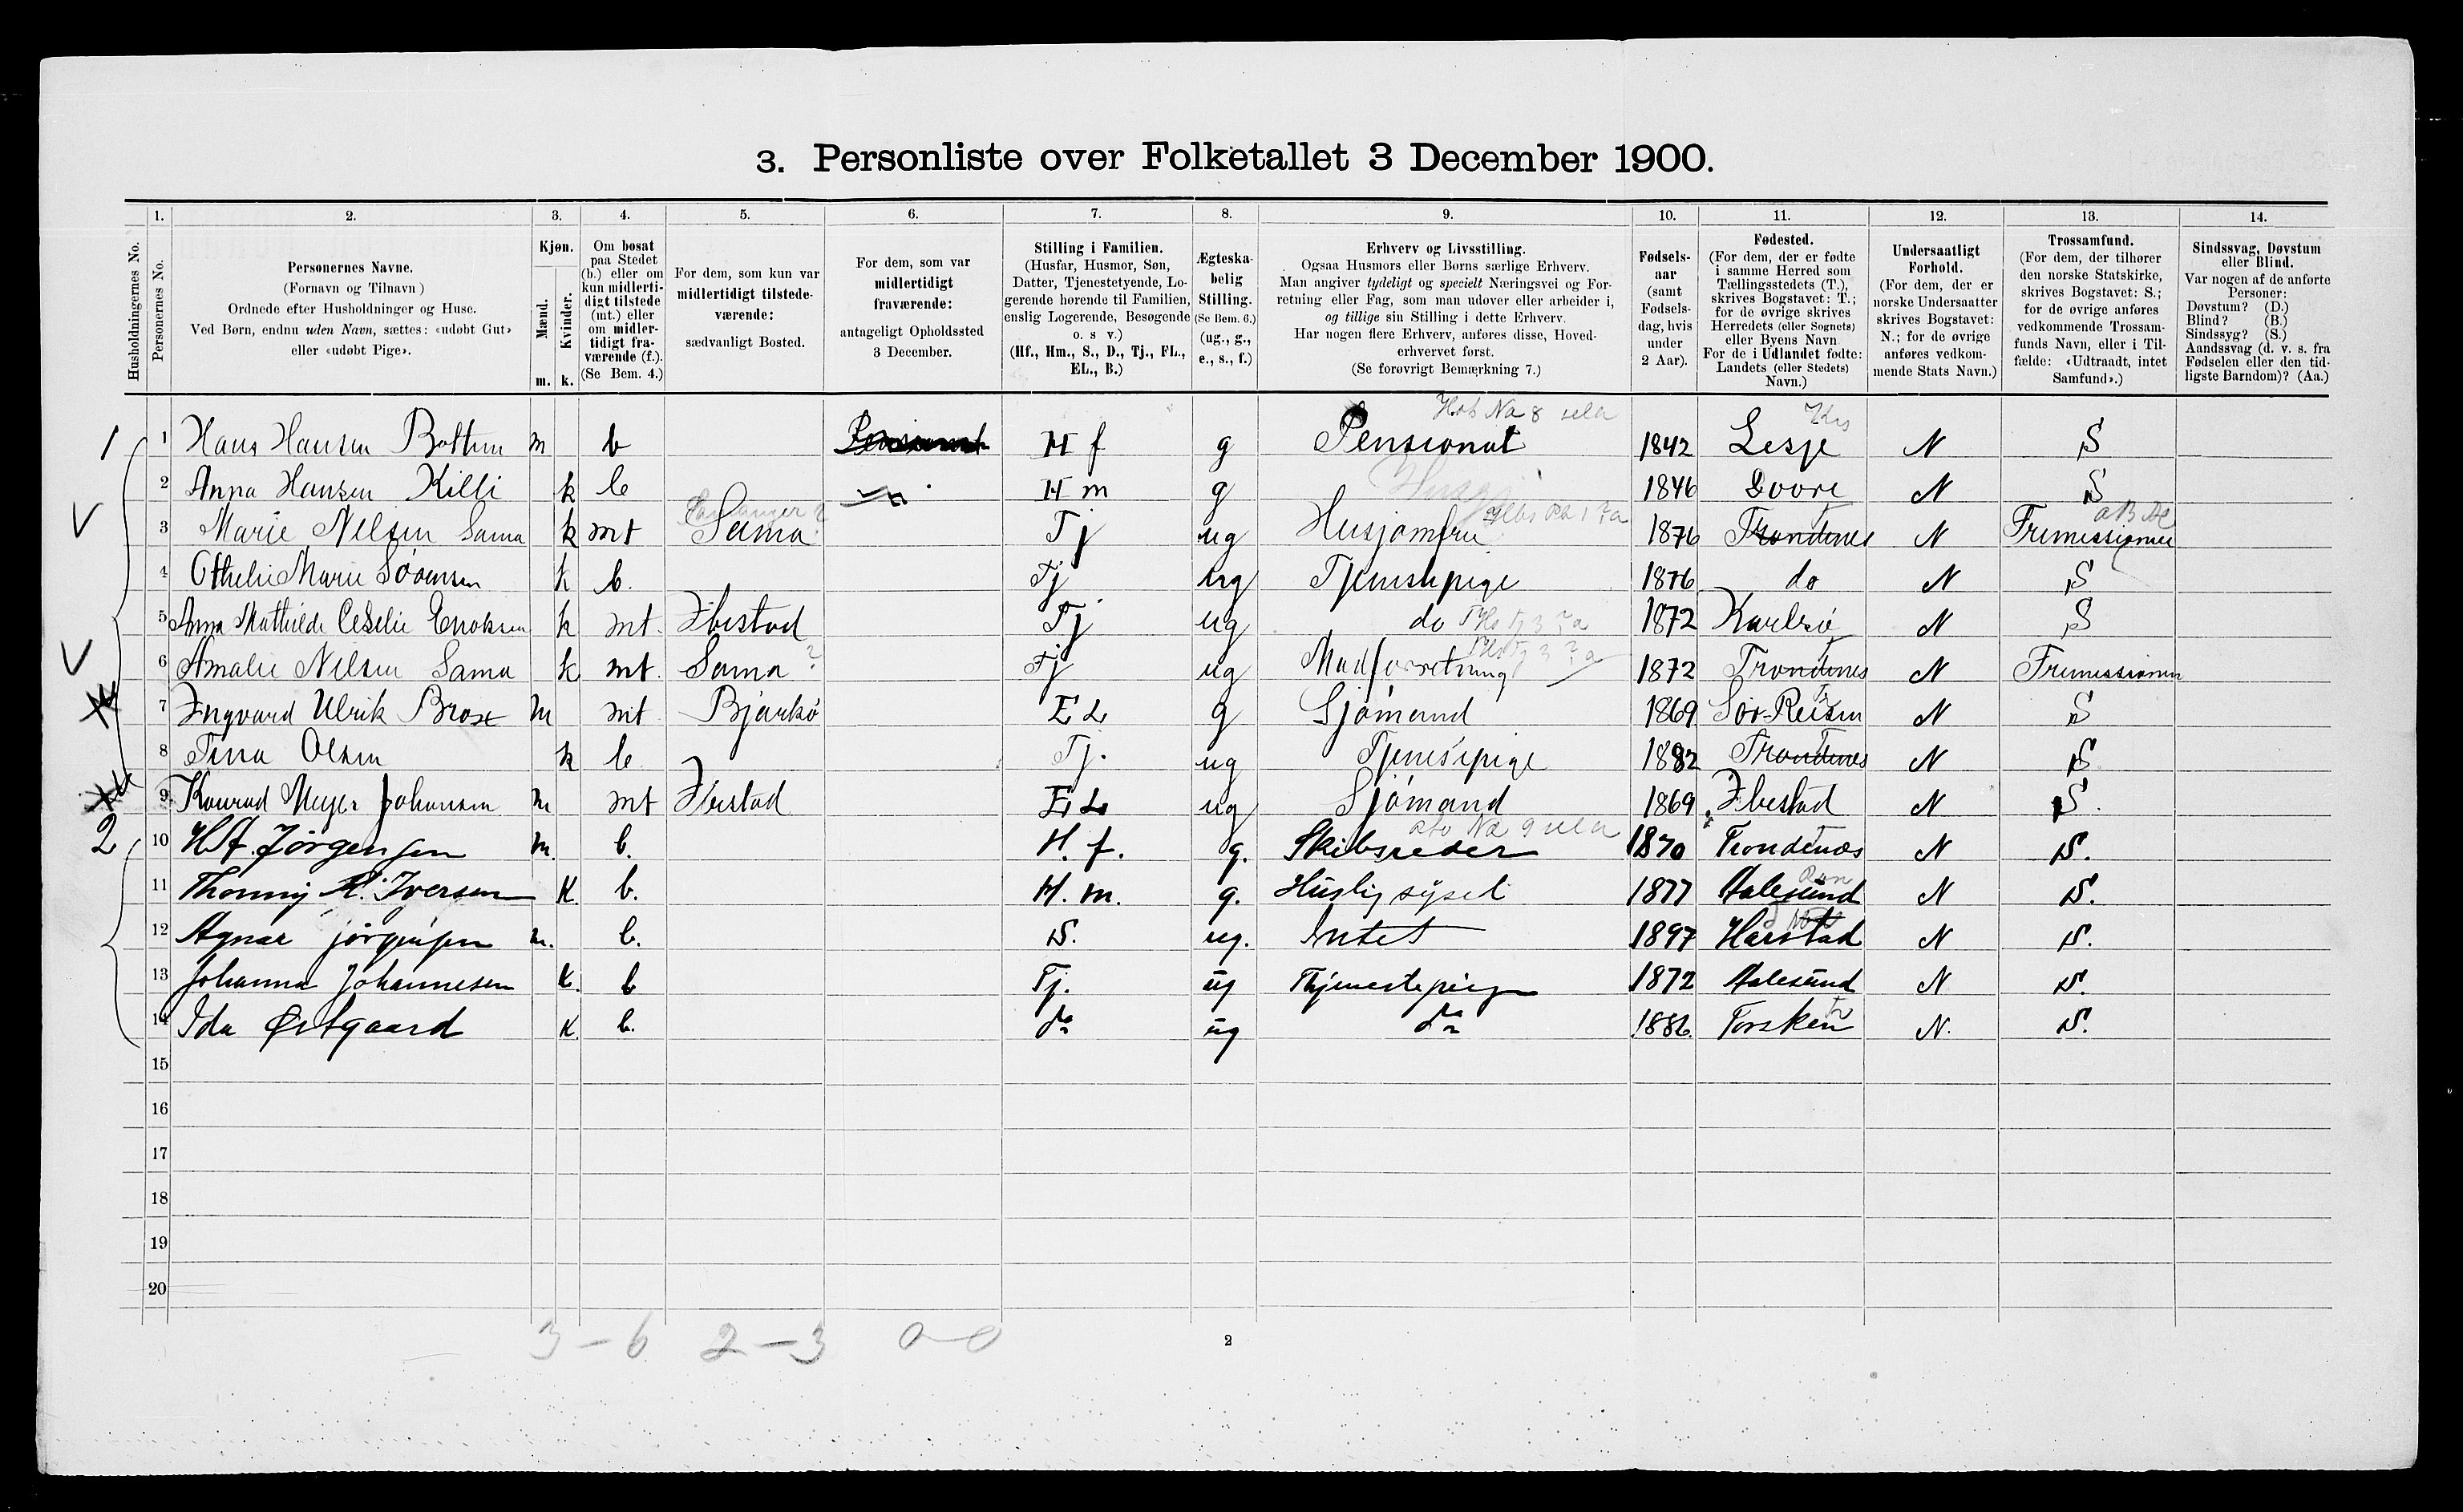 3. Personliste over Folketallet 3 December 1900.
1. 2. 3. 4. 5. 6. 7. 8. 9. 10. 11. 12. 13. 14.
Husholdningernes No.
Personernes No.
Personernes Navne.
(Fornavn og Tilnavn)
Ordnede efter Husholdninger og Huse.
Ved Børn, endnu uden Navn, sættes: «udøbt Gut»
eller «udøbt Pige».
Kjøn.
Mænd.
Kvinder.
m. k.
Om bosat
paa Stedet
(b.) eller om
kun midlerti-
digt tilstede
(mt.) eller
om midler-
tidigt fra-
værende (f.).
(Se Bem. 4.)
For dem, som kun var
midlertidigt tilstede-
værende:
sædvanligt Bosted.
For dem, som var
midlertidigt
fraværende:
antageligt Opholdssted
3 December.
Stilling i Familien.
(Husfar, Husmor, Søn,
Datter, Tjenestetyende, Lo-
gerende hørende til Familien,
enslig Logerende, Besøgende
o. s v.)
(Hf., Hm., S., D., Tj., FL.,
EL., B.)
Ægteska-
belig
Stilling.
(Se Bem. 6.)
(ug., g.,
e., s., f.)
Erhverv og Livsstilling.
Ogsaa Husmors eller Børns særlige Erhverv.
Man angiver tydeligt og specielt Næringsvei og For-
retning eller Fag, som man udover eller arbeider i,
og tillige sin Stilling i dette Erhverv.
Har nogen flere Erhverv, anføres disse, Hoved-
erhvervet først.
(Se forøvrigt Bemærkning 7.)
Fødsels-
aar
(samt
Fødsels-
dag, hvis
under
2 Aar).
Fødested.
(For dem, der er fødte
i samme Herred som
Tællingsstedets (T.),
skrives Bogstavet: T.;
for de øvrige skrives
Herredets (eller Sognets)
eller Byens Navn
For de i Udlandet fødte:
Landets (eller Stedets)
Navn.)
Undersaatligt
Forhold.
(For dem, der er
norske Undersaatter
skrives Bogstavet:
N.; for de øvrige
anføres vedkom-
mende Stats Navn.)
Trossamfund.
(For dem, der tilhører
den norske Statskirke,
skrives Bogstavet: S.;
for de øvrige anføres
vedkommende Trossam-
funds Navn, eller i Til-
fælde: «Udtraadt, intet
Samfund».)
Sindssvag, Døvstum
eller Blind.
Var nogen af de anførte
Personer:
Døvstum? (D.)
Blind? (B.)
Sindssyg? (S.)
Aandssvag (d. v. s. fra
Fødselen eller den tid-
ligste Barndom)? (Aa.)
1 1 Hans Hansen Bottum m b H f g Pensionat 1842 Lesje N S
2 Anna Hansen Killi k b H m g 1846 Dovre N S
3 Marie Nilsen Sama k mt Sama Tj ug Husjomfru 1876 Trondenes N Frimissionen
4 Othelie Marie Sörensen k b. Tj ug Tjenestepige 1876 do N S
5 Anna Mathilde Cesilie Enoksen k mt. Ibestad Tj ug do 1872 Karlsö N S
6 Amalie Nilsen Sama k mt. Sama ? Tj ug Madforretning 1872 Trondenes N Frimissionen
7 Ingvard Ulrik Brox m mt Bjarkö E L g Sjömand 1869 Sör-Reisen N S
8 Tina Olsen k b Tj. ug Tjenestepige 1882 Trondenes N S
9 Konrad Meyer Johansen m mt Ibestad E L ug Sjömand 1869 Ibestad N S.
2 10 H A. Jörgensen m. b. H. f. g. Skibsreder 1870 Trondenæs N S.
11 Thonny M. Iversen K. b. H. m. g. Huslig sysel 1877 Aalesund N S.
12 Agnar Jörgensen m. b. S. ug. Intet 1897 Harstad N S.
13 Johanna Johannesen K. b Tj. ug Thjenestepige 1872 Aalesund N S.
14 Ida Østgaard K. b. do ug do 1886. Torsken N. S.
15
16
17
18
19
20
3 – 6 2 – 3 0 – 0
2